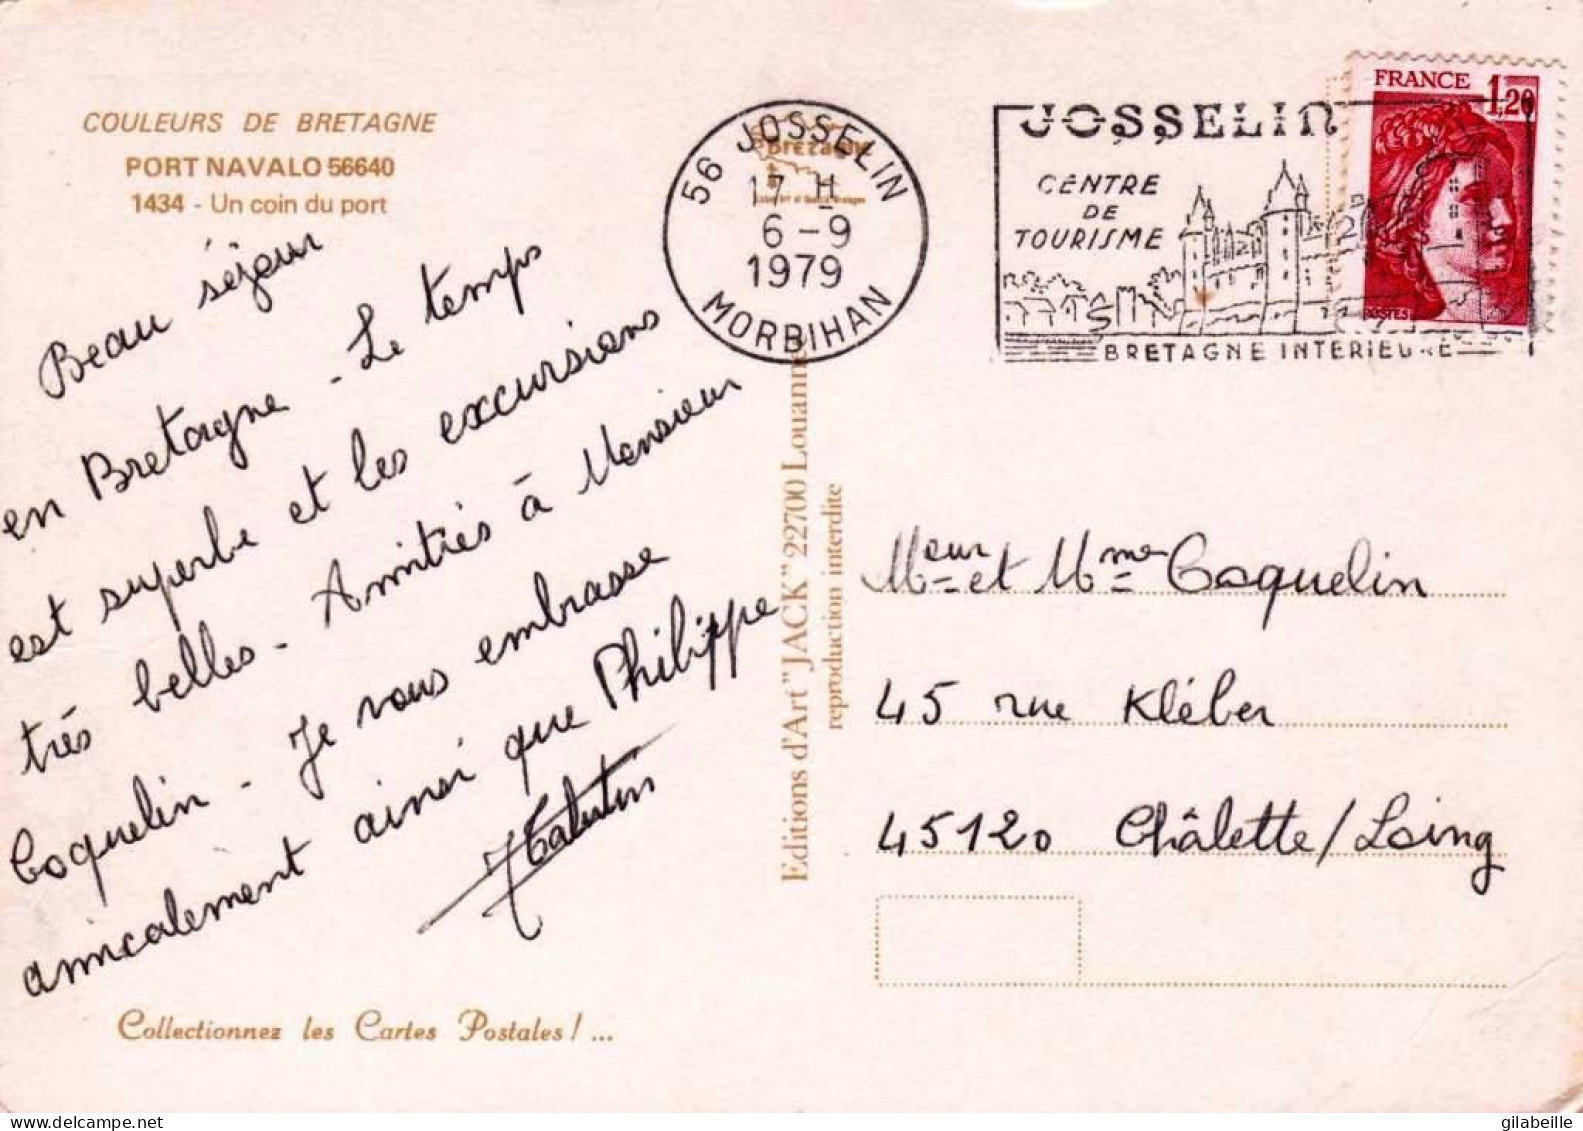 COULEURS DE BRETAGNE
PORT NAVALO 56640
1434 - Un coin du port
Beau séjour
en Bretagne - Le temps
est superbe et les excursions
très belles - Amitiés à Monsieur
Coquelin - Je vous embrasse
amicalement ainsi que Philippe
Collectionnez les Cartes Postales ! ...
56 JOSSELIN
17 H
6-9
1979
MORBIHAN
Bretagne
Editions d'Art "JACK" 22700 Louannec
reproduction interdite
JOSSELIN
CENTRE
DE
TOURISME
BRETAGNE INTERIEURE
FRANCE 1,20
POSTES
Meur et Mme Coquelin
45 rue Kléber
45120 Châlette/Loing
gilabeille